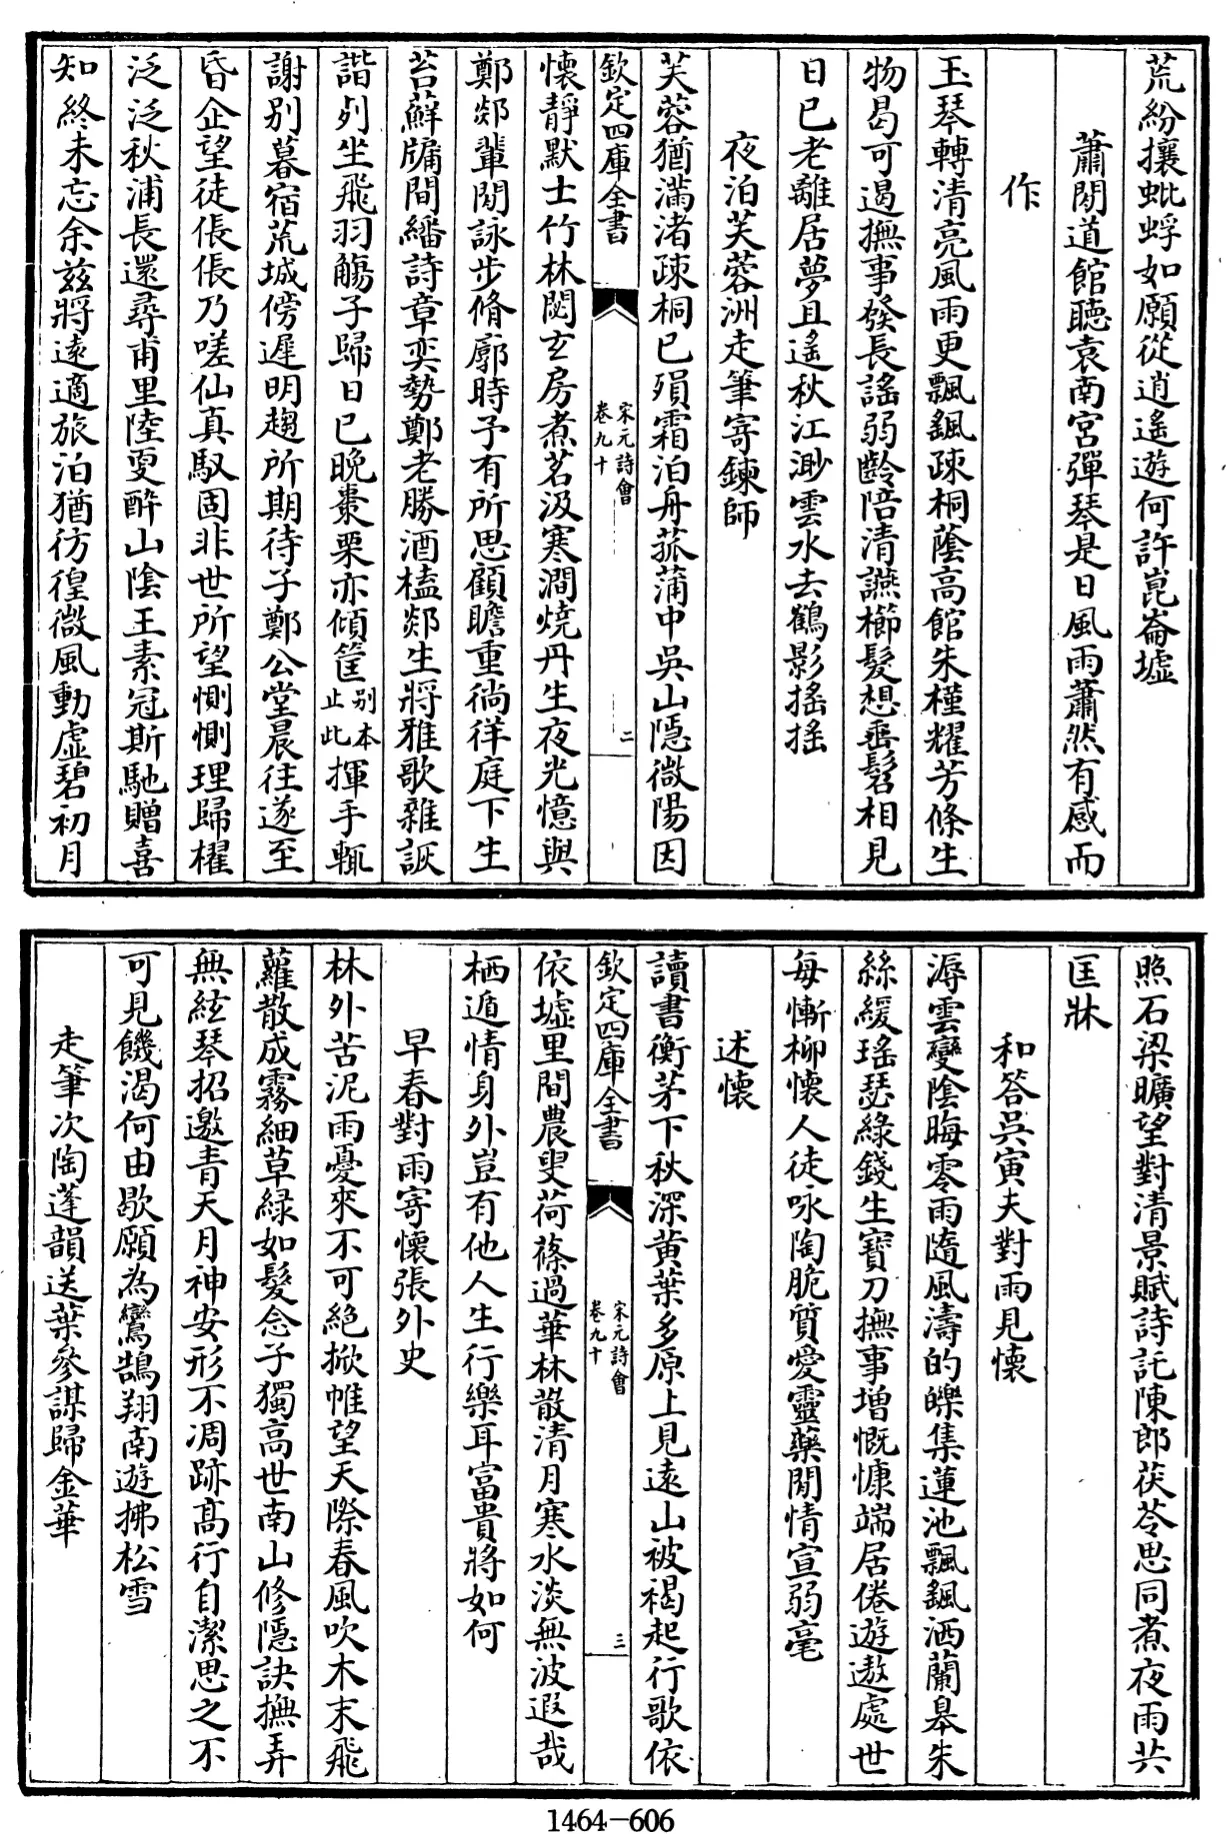 荒紛攘蚍蜉如願從逍遙遊何許崑崙墟
蕭閒道館聽袁南宮彈琴是日風雨蕭然有感而
作
玉琴轉清亮風雨更飄颻疎桐蔭高館朱槿耀芳條生
物曷可遏撫事發長謠弱齡陪清讌櫛髮想垂髫相見
日已老離居夢且遙秋江渺雲水去鶴影搖搖
夜泊芙蓉洲走筆寄鍊師
芙蓉猶滿渚疎桐已殞霜泊舟菰蒲中吳山隱微陽因
欽定四庫全書
宋元詩會
卷九十
二
懷靜默士竹林閟玄房煮茗汲寒澗燒丹生夜光憶與
鄭郯輩閒詠步脩廓時予有所思顧瞻重徜徉庭下生
苔蘚牖間繙詩章奕勢鄭老勝酒榼郯生將雅歌雜詼
諧列坐飛羽觴子歸日已晚棗栗亦傾筐
别本
止此
揮手輒
謝别暮宿荒城傍遲明趨所期待子鄭公堂晨往遂至
昏企望徒倀倀乃嗟仙真馭固非世所望惻惻理歸櫂
泛泛秋浦長還尋甫里陸更酔山陰王素冠斯馳贈喜
知終未忘余兹將遠適旅泊猶彷徨微風動虛碧初月
照石梁曠望對清景賦詩託陳郎茯苓思同煮夜雨共
匡牀
和答吳寅夫對雨見懷
溽雲變陰晦零雨隨風濤的皪集蓮池飄颻洒蘭皋朱
絲緩瑤瑟綠錢生寶刀撫事增慨慷端居倦遊遨處世
每慚柳懷人徒咏陶脆質愛靈藥閒情宣弱毫
述懷
讀書衡茅下秋深黄葉多原上見遠山被褐起行歌依
欽定四庫全書
宋元詩會
卷九十
三
依墟里間農叟荷蓧過華林散清月寒水淡無波遐哉
栖遁情身外豈有他人生行樂耳富貴將如何
早春對雨寄懷張外史
林外苦泥雨憂來不可絶掀帷望天際春風吹木末飛
蘿散成霧細草緑如髮念子獨高世南山修隱訣撫弄
無絃琴招邀青天月神安形不凋跡髙行自潔思之不
可見饑渴何由歇願為鸞鵠翔南遊拂松雪
走筆次陶蓬韻送葉參謀歸金華
1464-606